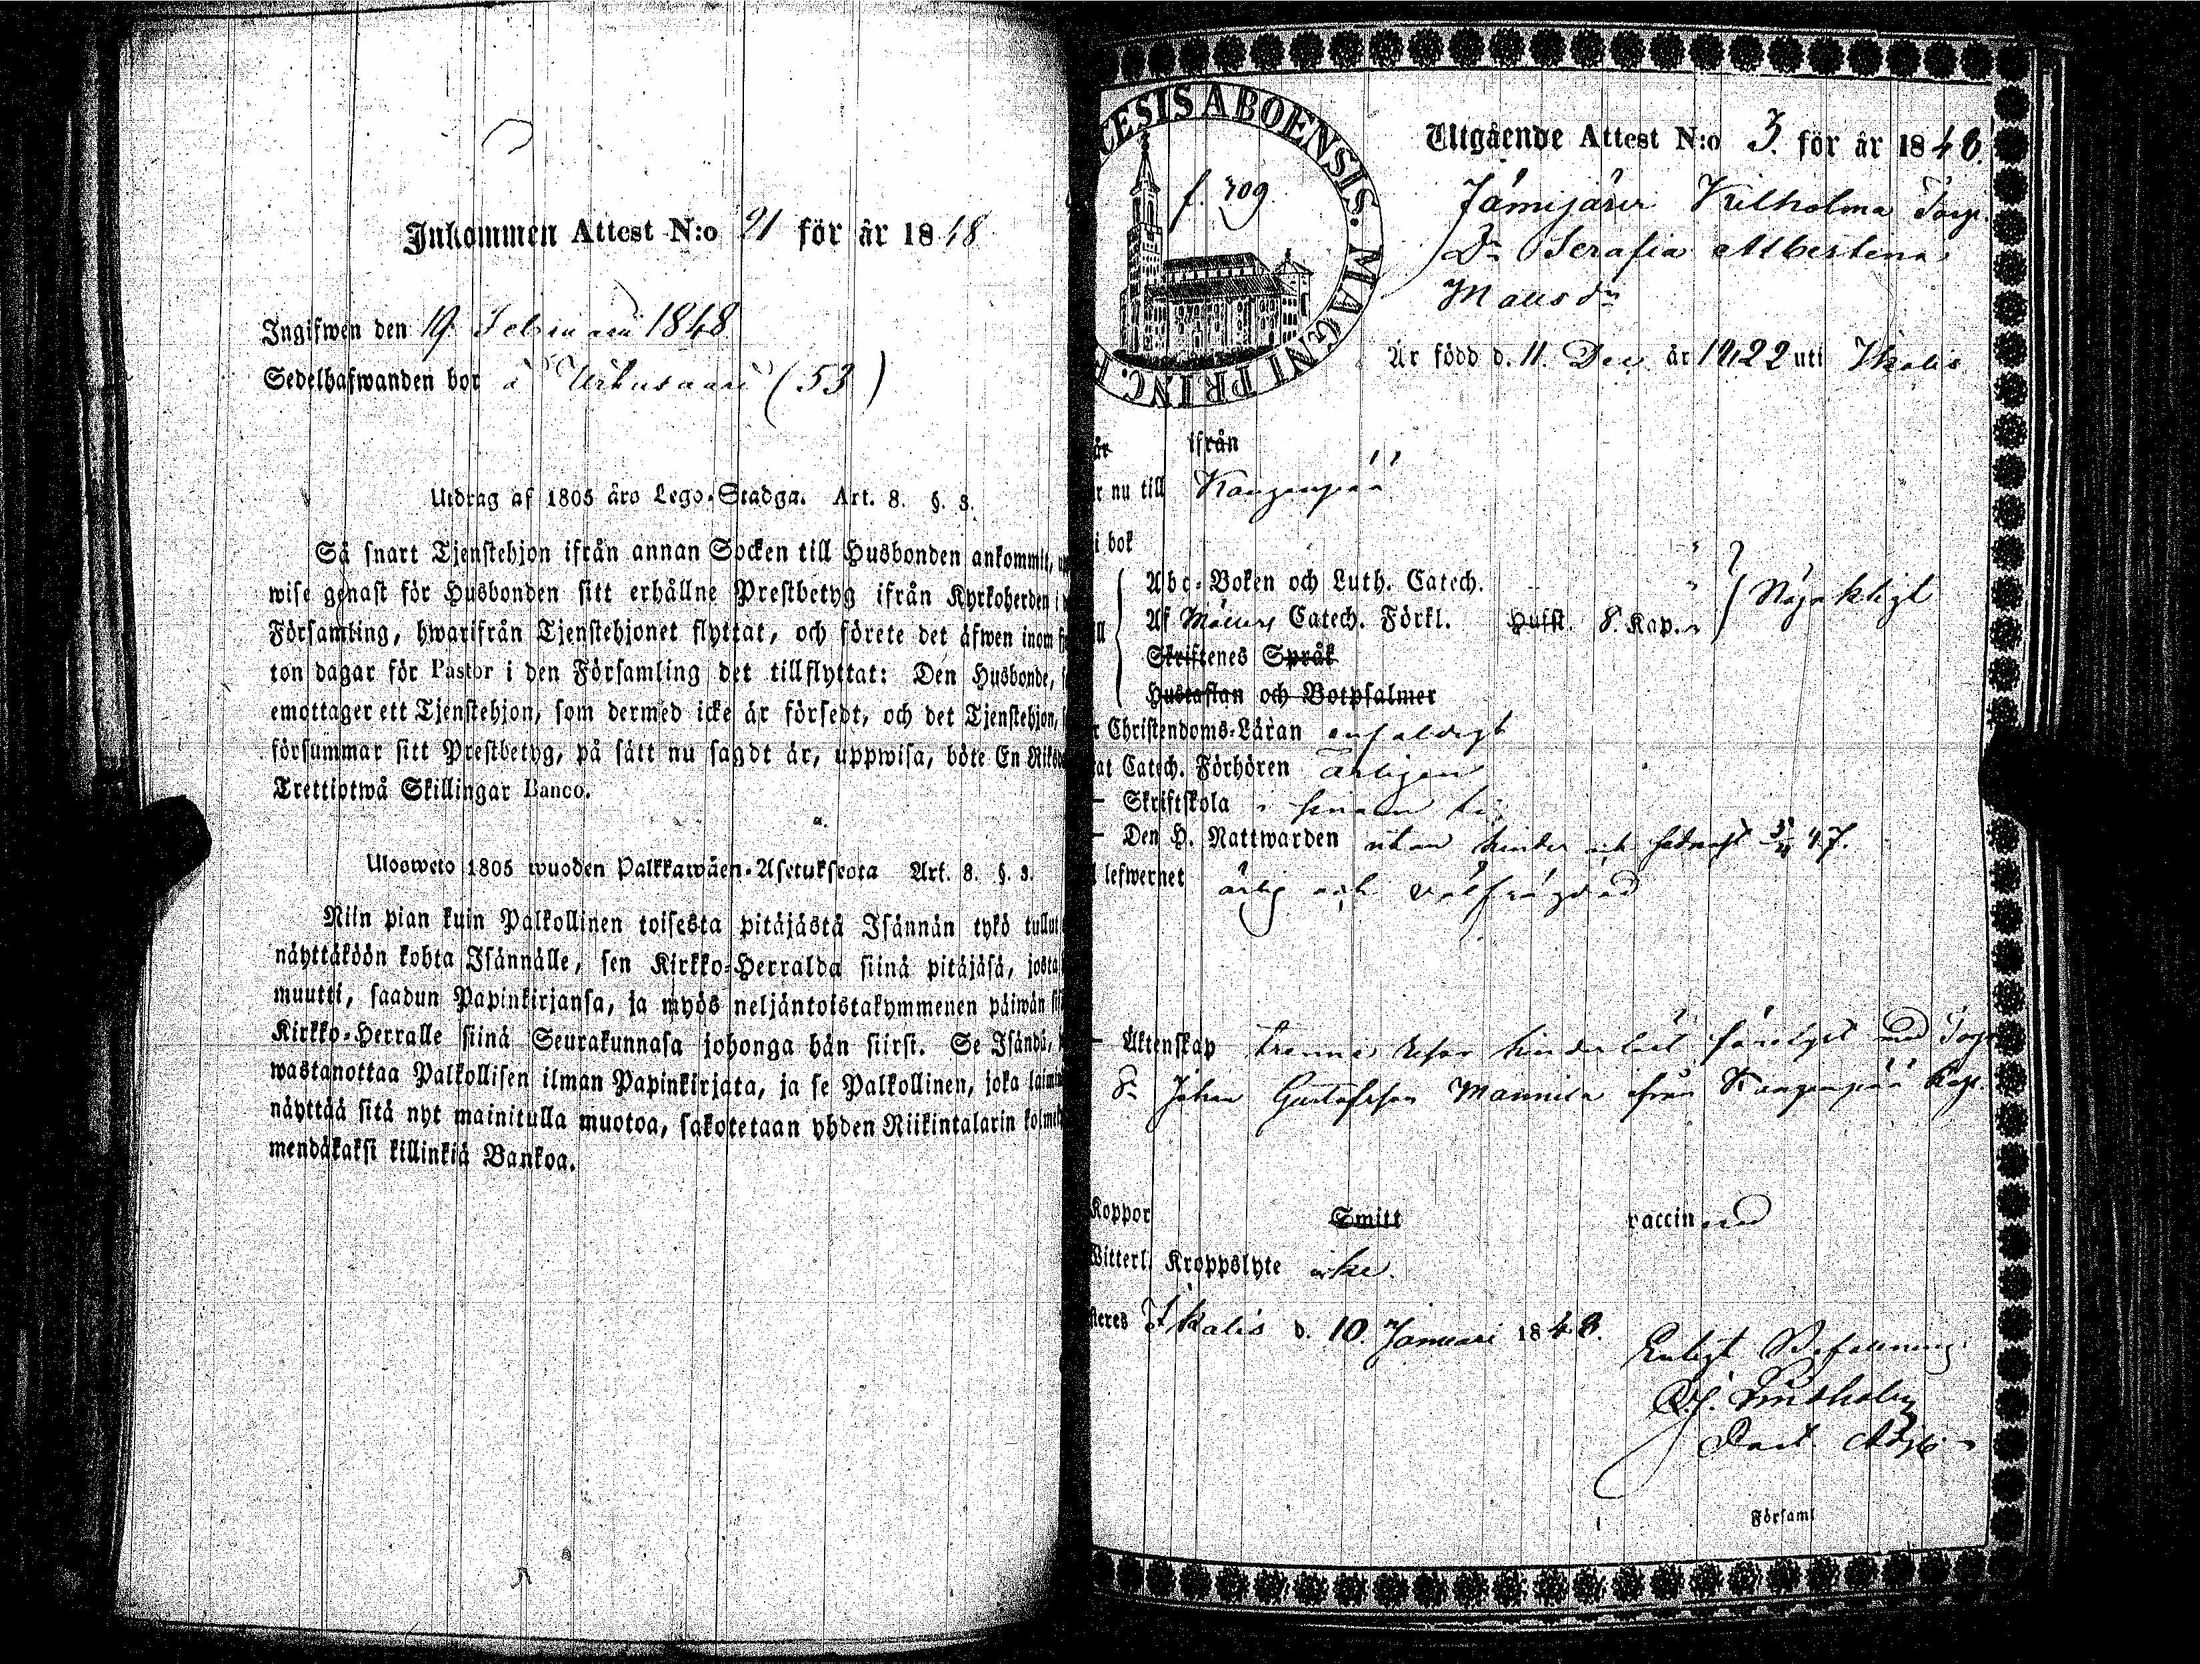 Inkommen Attest N:o 21 för år 1848
Ingifwen den 19 Februari 1848
Sedelhafwanden bor å (53)
Utdrag af 1805 åro Lego-Stadga. Art. 8. §. 3.
Så snart Tjenstehjon ifrån annan Socken till Husbonden ankommit,
wise genast för Husbonden sitt erhållne Prestbetyg ifrån Kyrkoherden i
Församling, hwarifrån Tjenstehjonet flyttat, och förete det äfwen inom
ton dagar för Pastor i den Församling det tillflyttat: Den Husbonde,
emottager ett Tjenstehjon, som dermed icke är försedt, och det Tjenstehjon,
försummar sitt Prestbetyg, på sätt nu sagdt är, uppwisa, böte En
Trettiotwå Skillingar Banco.
Ulosweto 1805 wuoden Palkkawäen-Asetuksesta Art. 8. §. 3.
Niin pian kuin Palkollinen toisesta pitäjästä Isännän tykö tullut
näyttäköön kohta Isännälle, sen Kirkko-Herralda siinä pitäjäsä, josta
muutti, saadun Papinkirjansa, ja myös neljäntoistakymmenen päiwän
Kirkko-Herralle siinä Seurakunnasa johonga hän siirst. Se Isändä,
wastanottaa Palkollisen ilman Papinkirjata, ja se Palkollinen, joka
näyttää sitä nyt mainitulla muotoa, sakotetaan yhden Riikintalarin
mendäkaksi killinkiä Bankoa.
CESIS ABOENSIS. MAGNI PRINC.
f. 709
Utgående Attest N:o 3. för år 1848.
Jämijärvi Torp.
Dr Serafia Albertina
Matsdr
Är född d. 11. Dec. år 1822 uti Ikalis
år ifrån
r nu till Kangenpää
i bok
Abc-Boken och Luth. Catech.
Af Catech. Förkl. Hufst. 8. Kap.
Nöjaktigt
Skriftenes Språk
Hustaflan och Botpsalmer
r Christendoms-Läran enfaldigt
at Catech. Förhören årligen
– Skriftskola i sinom tid
– Den H. Nattwarden utan hinder och sednast 47.
lefwernet ärlig och välfrägdad
– Äktenskap trenne resor hinderlöst förelyst med Torp
Sn Johan Gustafsson Mannila från Kangenpää Kapl.
Koppor Smitt vaccinerad
Witterl. Kroppslyte icke.
steres Ikalis d. 10. Januari 1848.
Enligt Befallning
Past. Adj:
Församl